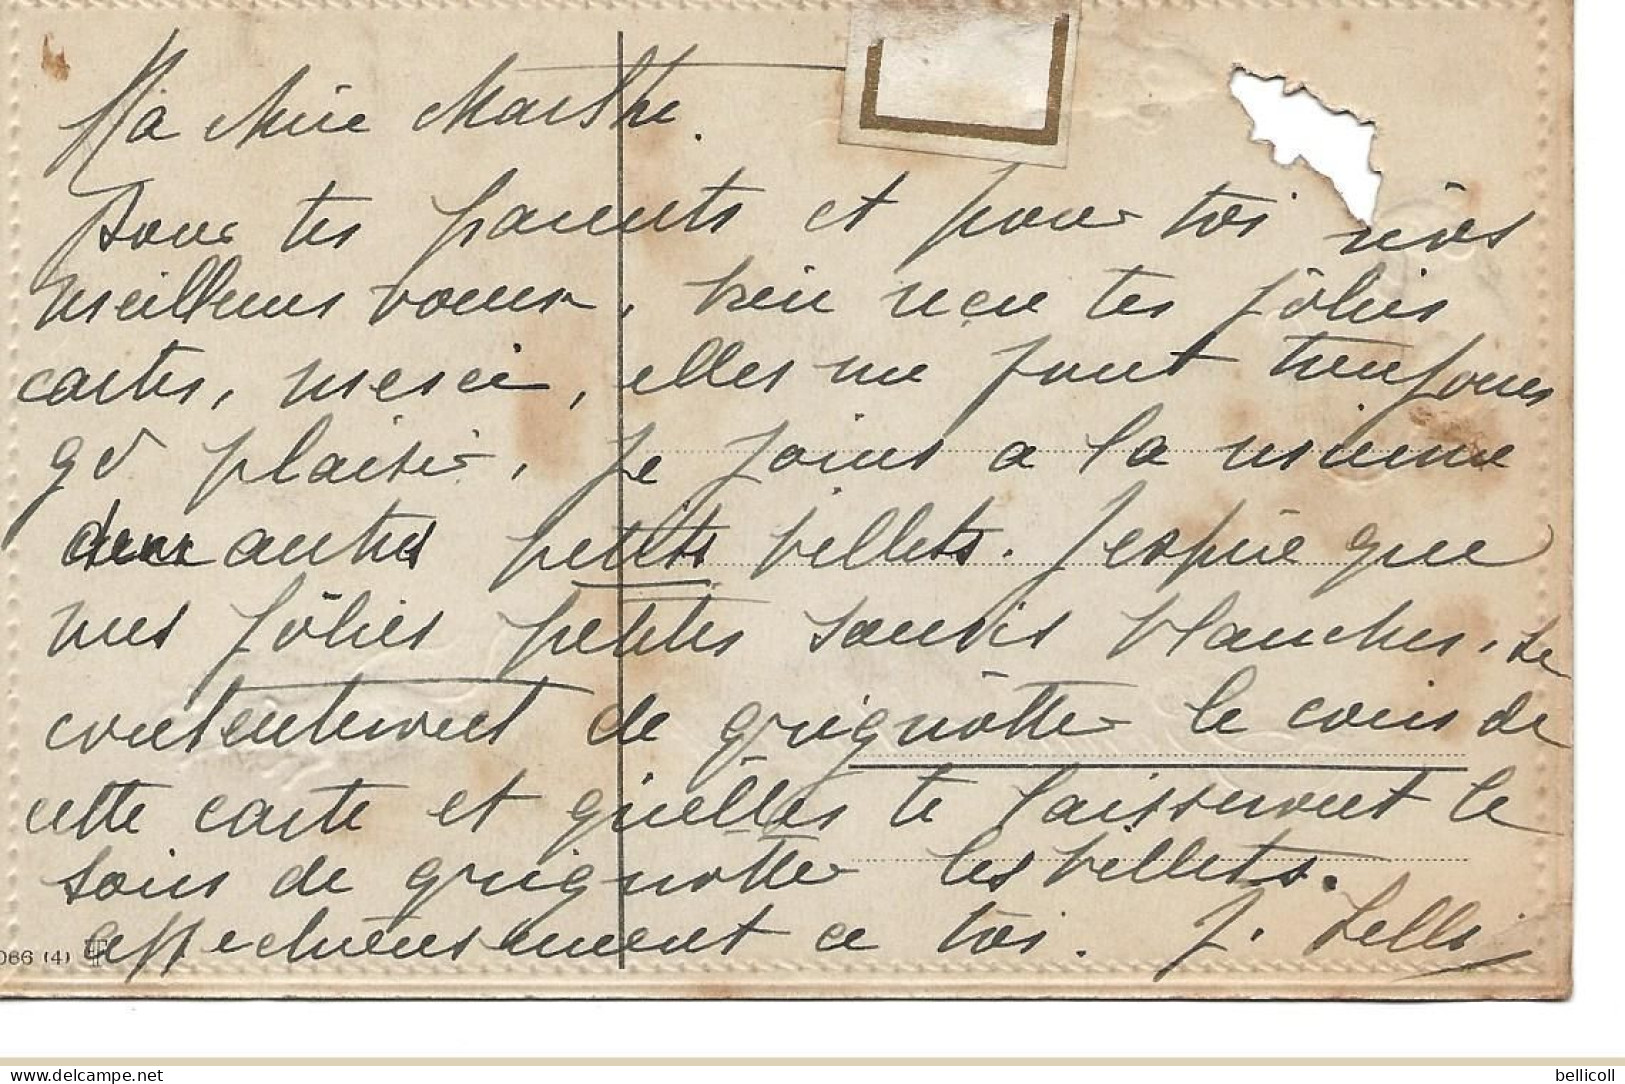 Ma chère Marthe.
Pour tes parents et pour toi nos
meilleurs voeux, bien reçu tes jôlies
cartes, merci, elles me font toujours
qd plaisir, je joins a la mienne
deux autres petits billets. J'espère que
mes jôlies petites souris blanches, se
contenteront de grignôtter le coin de
cette carte et qu'elles te laisseront le
soin de grignôtter les billets.
affectueusement a toi. J.
066 (4)
bellicoll
www.delcampe.net